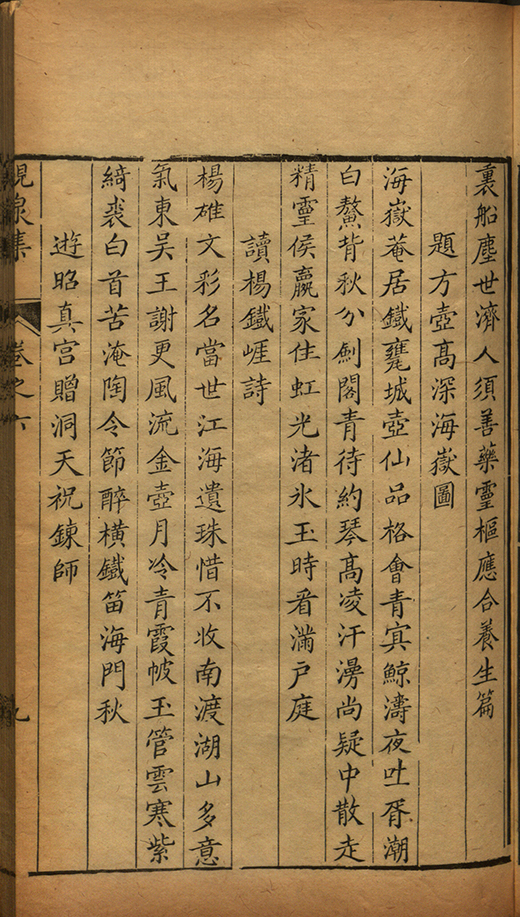 裏船塵世濟人須善藥靈樞應合養生篇
題方壺髙深海嶽圖
海嶽菴居鐵甕城壺仙品格會青㝠鯨濤夜吐胥潮
白鰲背秋分劍閣青待約琴髙凌汗漫尚疑中散走
精靈侯嬴家住虹光渚氷玉時看滿戸庭
讀楊鐵崖詩
楊雄文彩名當世江海遺珠惜不收南渡湖山多意
氣東吴王謝更風流金壺月冷青霞帔玉管雲寒紫
綺裘白首苦淹陶令節醉橫鐵笛海門秋
遊昭真宮贈洞天祝鍊師
峴泉集
卷之六
九